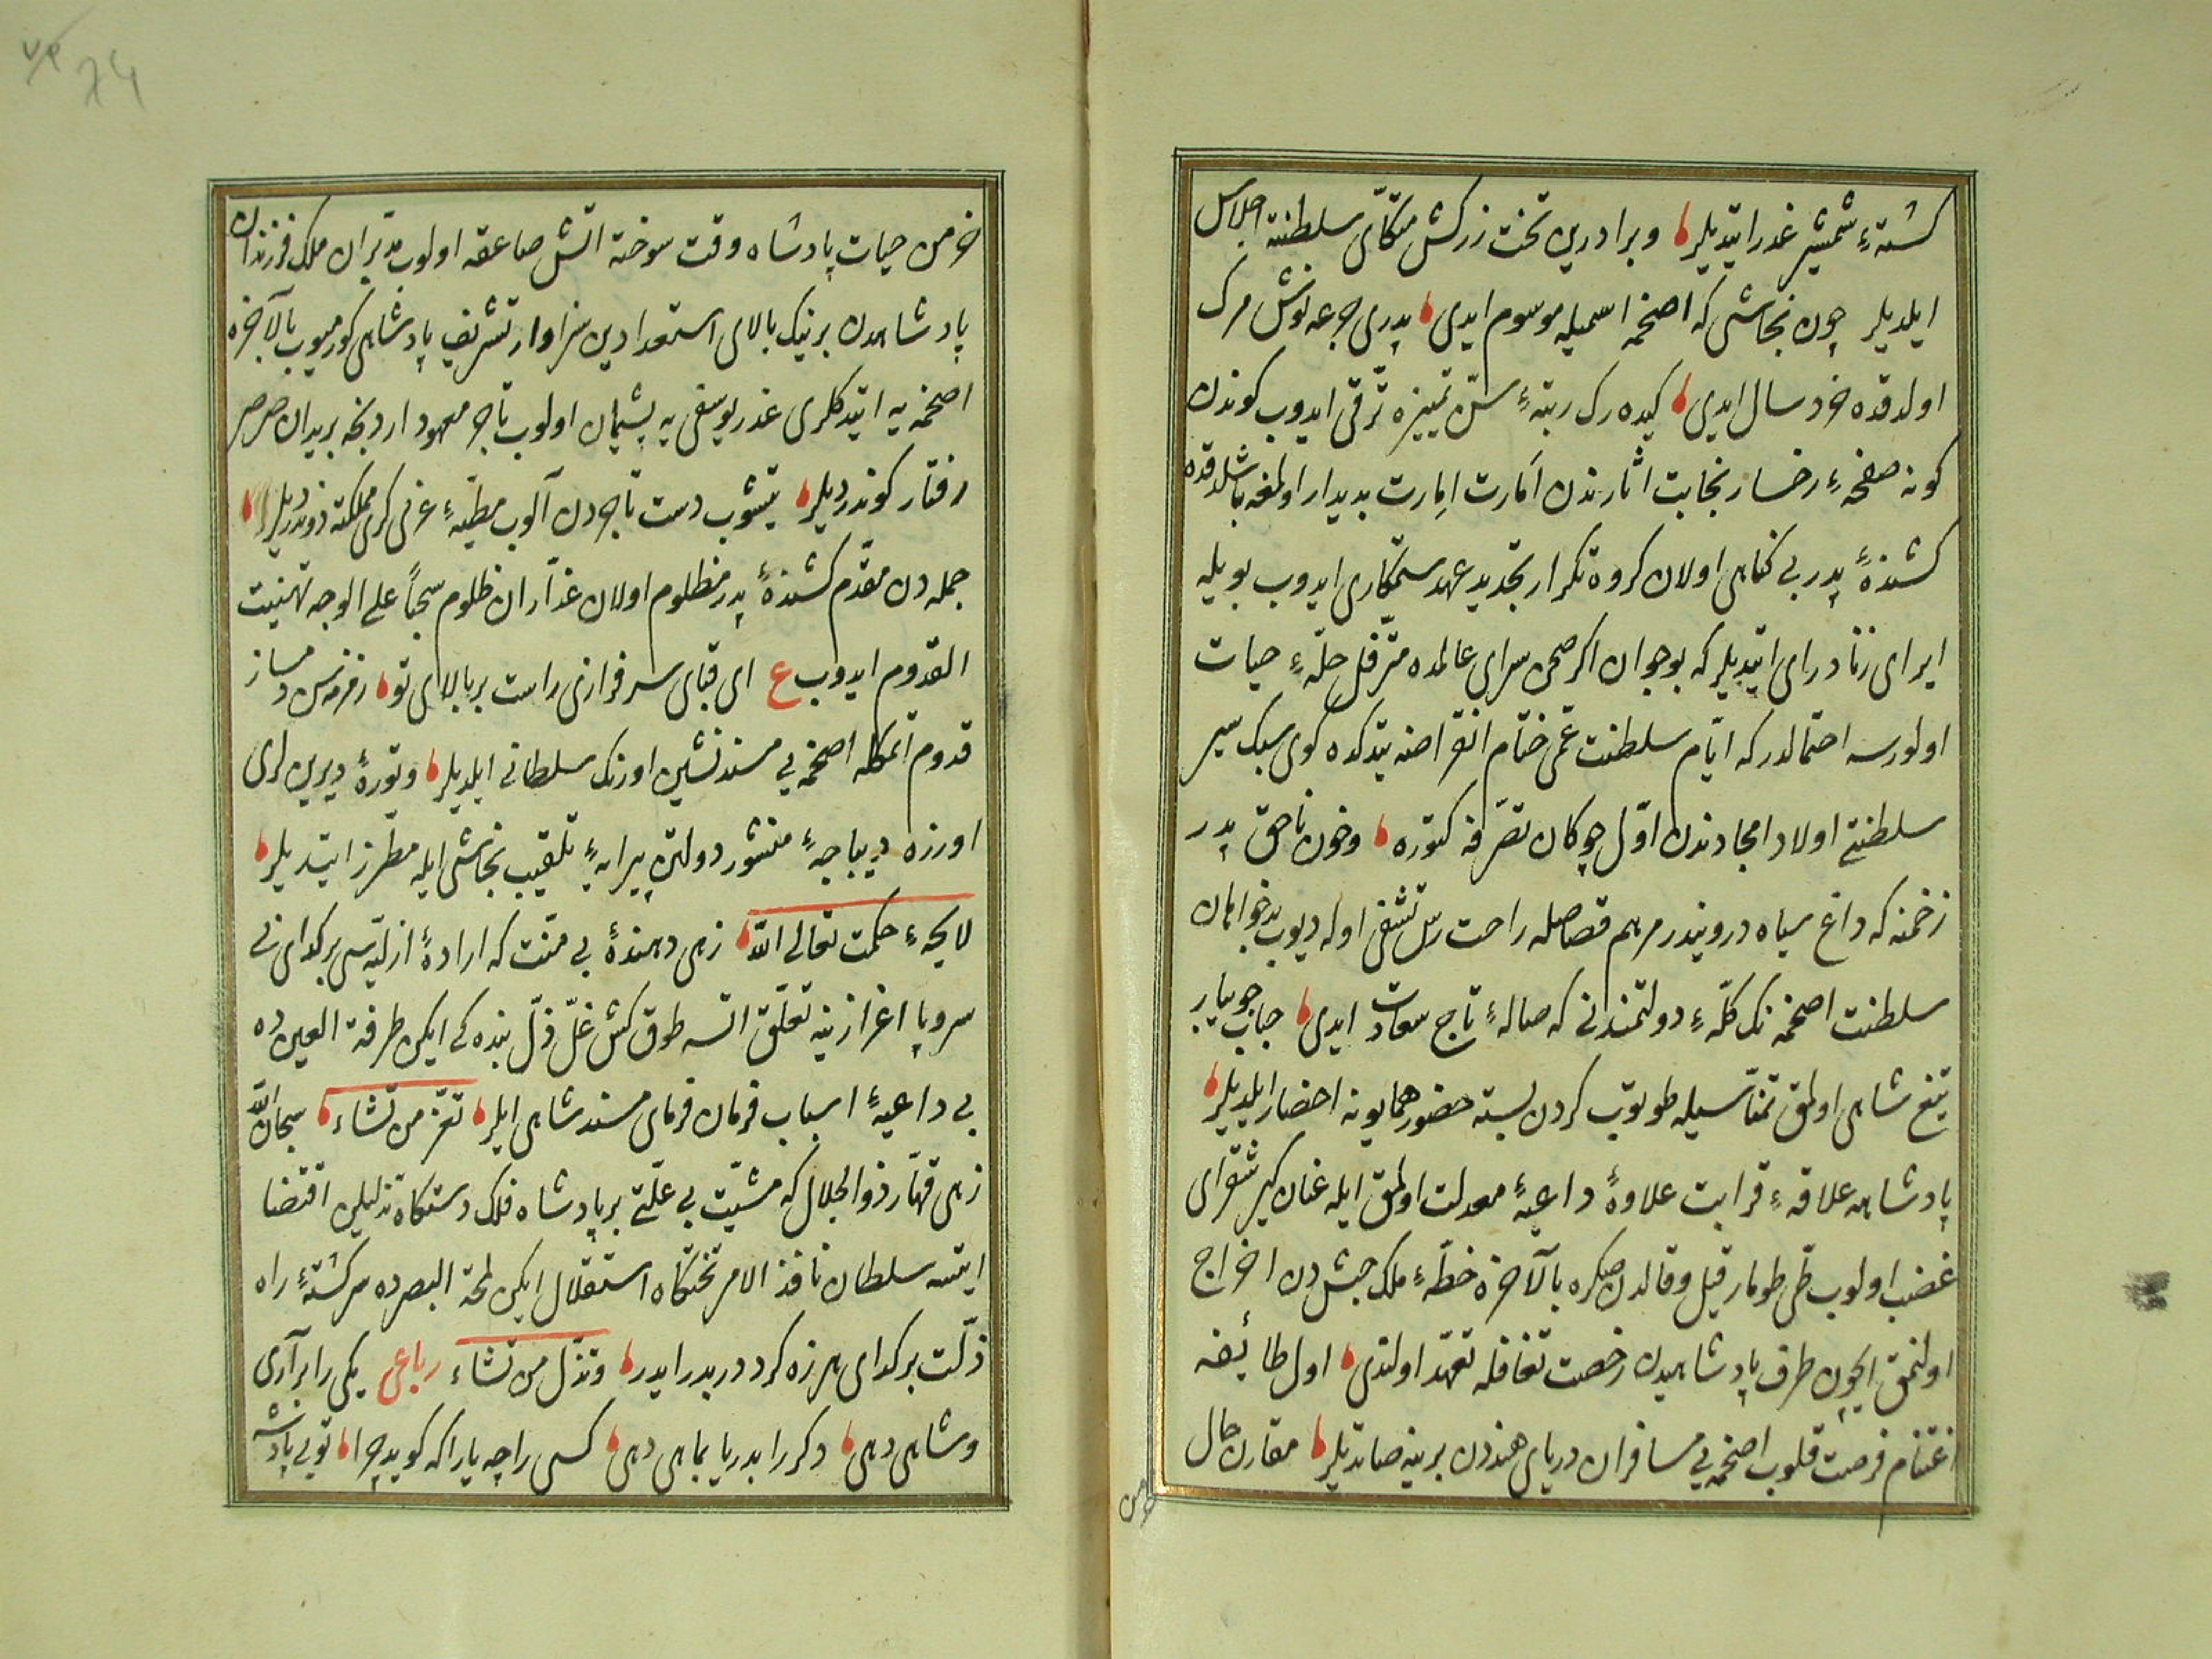 كشتۀ شمشير غدر ايتديلر و برادرين تخت زركش متكّای سلطنته اجلاس
ايلديلر چون نجاشی كه اصخمه اسميله موسوم ايدی پدری جرعه نوش مرك
اولدقده خرد سال ايدی كيده رك رتبۀ سنّ تمييزه ترقی ايدوب كوندن
كونه صفحۀ رخسار نجابت اثارندن اَمارت اِمارت بديدار اولمغه باشلدقده
كشندۀ پدر بی كناهی اولان كروه تكرار تجديد عهد ستمكاری ايدوب بويله
ايرای زناد رای ايتديلر كه بو جوان اكر صحن سرای عالمده مترفل حلّۀ حيات
اولورسه احتمالدر كه ايّام سلطنت عمّی ختام انقراضنه يتدكده كوی سبك سير
سلطنتی اولاد امجادندن اوّل چوكان تصرّفه كتوره و خون ناحق پدر
زخمنه كه داغ سياه دروندر مرهم قصاصله راحت رس تشفّی اوله ديوب بدخواهان
سلطنت اصخمه نك كلّۀ دولتمندنی كه هالۀ تاج سعادت ايدی حباب جويبار
تيغ شاهی اولمق تمنّاسيله طوتوب كردن بسته حضور همايونه احضار ايلديلر
پادشاهه علاقۀ قرابت علاوۀ داعيۀ معدلت اولمق ايله عنان كير شقرای
غضب اولوب طیّ طومار قيل و قالدن صكره بالآخره خطّۀ ملك حبش دن اخراج
اولنمق ايچون طرف پادشاهيدن رخصت تغافله تعهّد اولندی اول طائفه
اغتنام فرصت قلوب اصخمه يی مسافران دريای هنددن برينه صاتديلر مقارن حال
خرمن
خرمن حيات پادشاه وقت سوخته اتش صاعقه اولوب مدبّران ملك فرزندان
پادشاهدن برينك بالای استعدادين سزاوار تشريف پادشاهی كورميوب بالآخره
اصخمه يه ايتدكلری غدر يوسفی يه پشيمان اولوب تاجر معهود اردنجه بريدان صرصر
رفتار كوندرديلر يتشوب دست تاجردن آلوب مطيّۀ عزی كری مملكته دوندرديلر
جمله دن مقدّم كشندۀ پدر مظلوم اولان غدّاران ظلوم سجّاً علی الوجه تهنيت
القدوم ايدوب ع ای قبای سرفرازی راست بر بالای تو زمزمه سن دمساز
قدوم اتمكله اصخمه يی مسندنشين اورنك سلطانی ايلديلر و تورۀ ديرين لری
اورزه ديباجۀ منشور دولتن پيرايۀ تلقيب نجاشی ايله مطرّز ايتديلر
لايحۀ حكمت تعالی الله زهی دهندۀ بی منّت كه ارادۀ ازليّه سی بر كدای بی
سر و پا اعزازينه تعلّق اتسه طوق كش غلّ ذلّ بنده كی ايكن طرفة العين ده
بی داعيۀ اسباب فرمان فرمای مسند شاهی ايلر تعزّ من تشاء سبحان الله
زهی قهّار ذو الجلال كه مشيّت بی علّتی بر پادشاه فلك دستكاه تذليلن اقتضا
ايتسه سلطان نافذ الامر تختكاه استقلال ايكن لمحة البصرده سركشتۀ راه
ذلّت بر كدای هرزه كرد دربدر ايدر و تذلّ من تشاء رباعی يكی را برآری
و شاهی دهی دكر را بدريا بماهی دهی كسی را چه يارا كه كويد چرا تويی پادشه